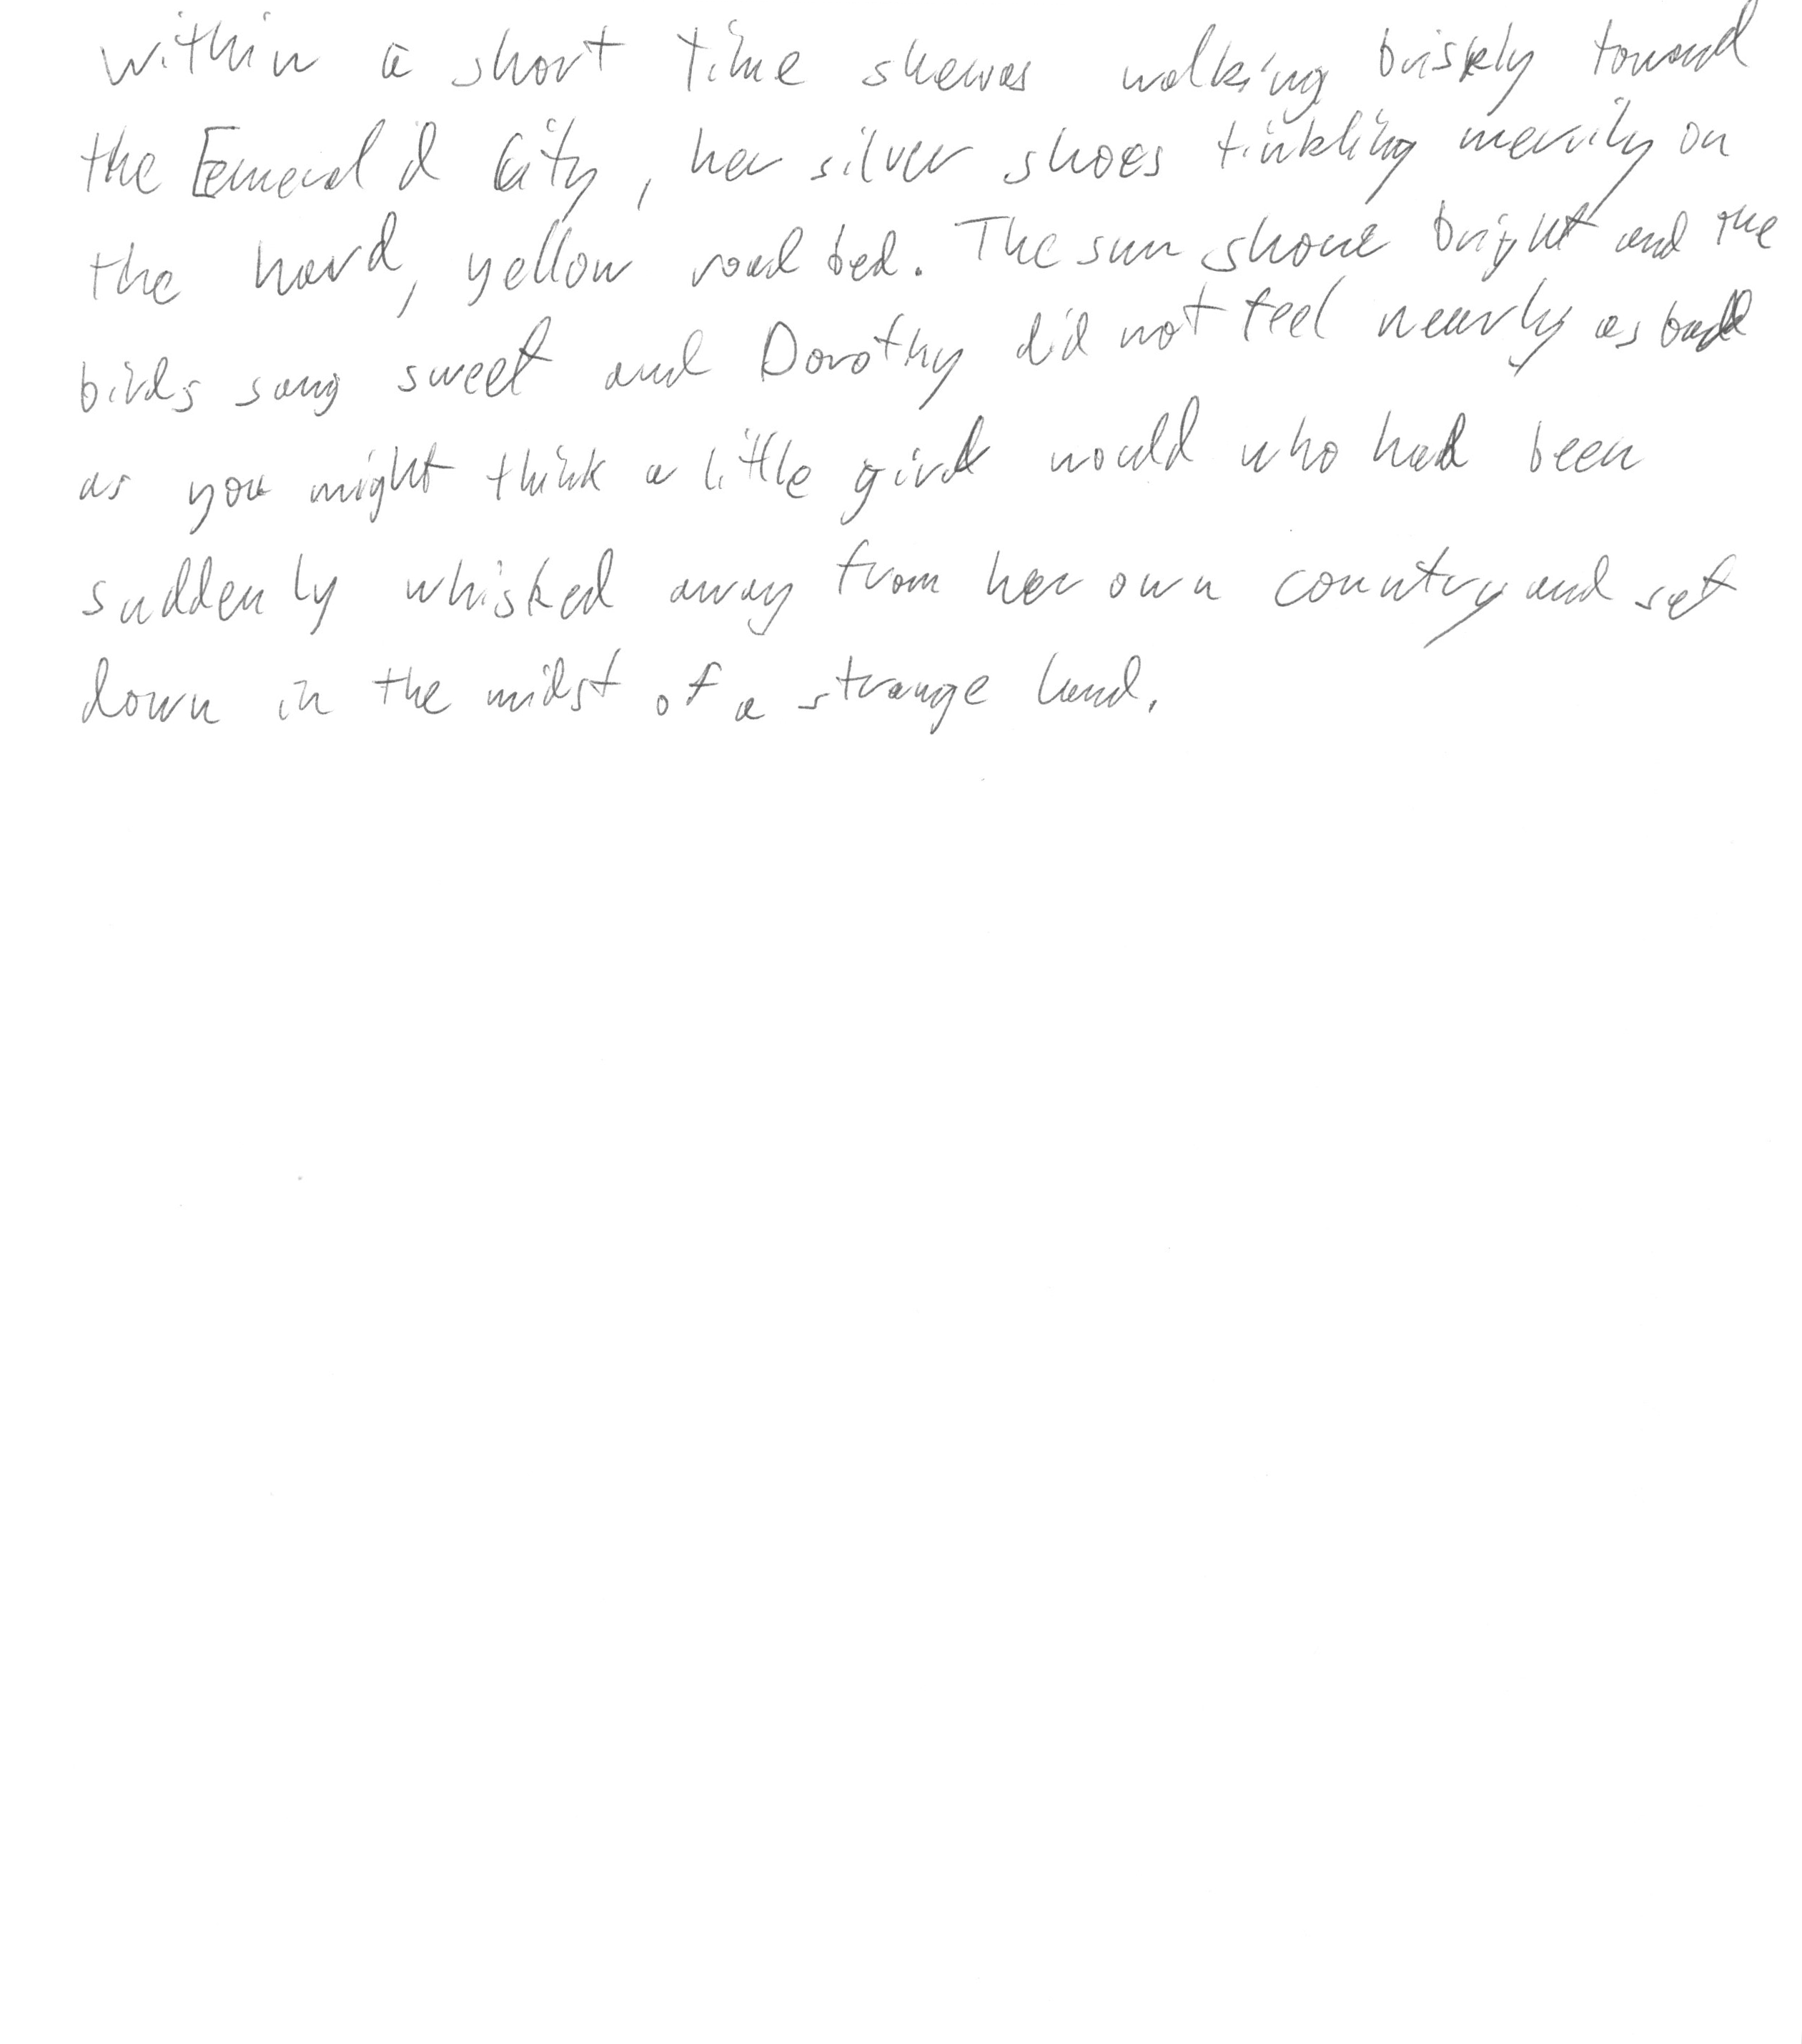 Within a short time she was walking briskly toward
the Emerald City, her silver shoes tinkling merrily on
the hard, yellow road bed. The sun shone bright and the
birds sang sweet and Dorothy did not feel nearly as bad
as you might think a little girl would who had been
suddenly whisked away from her own country and set
down in the midst of a strange land.